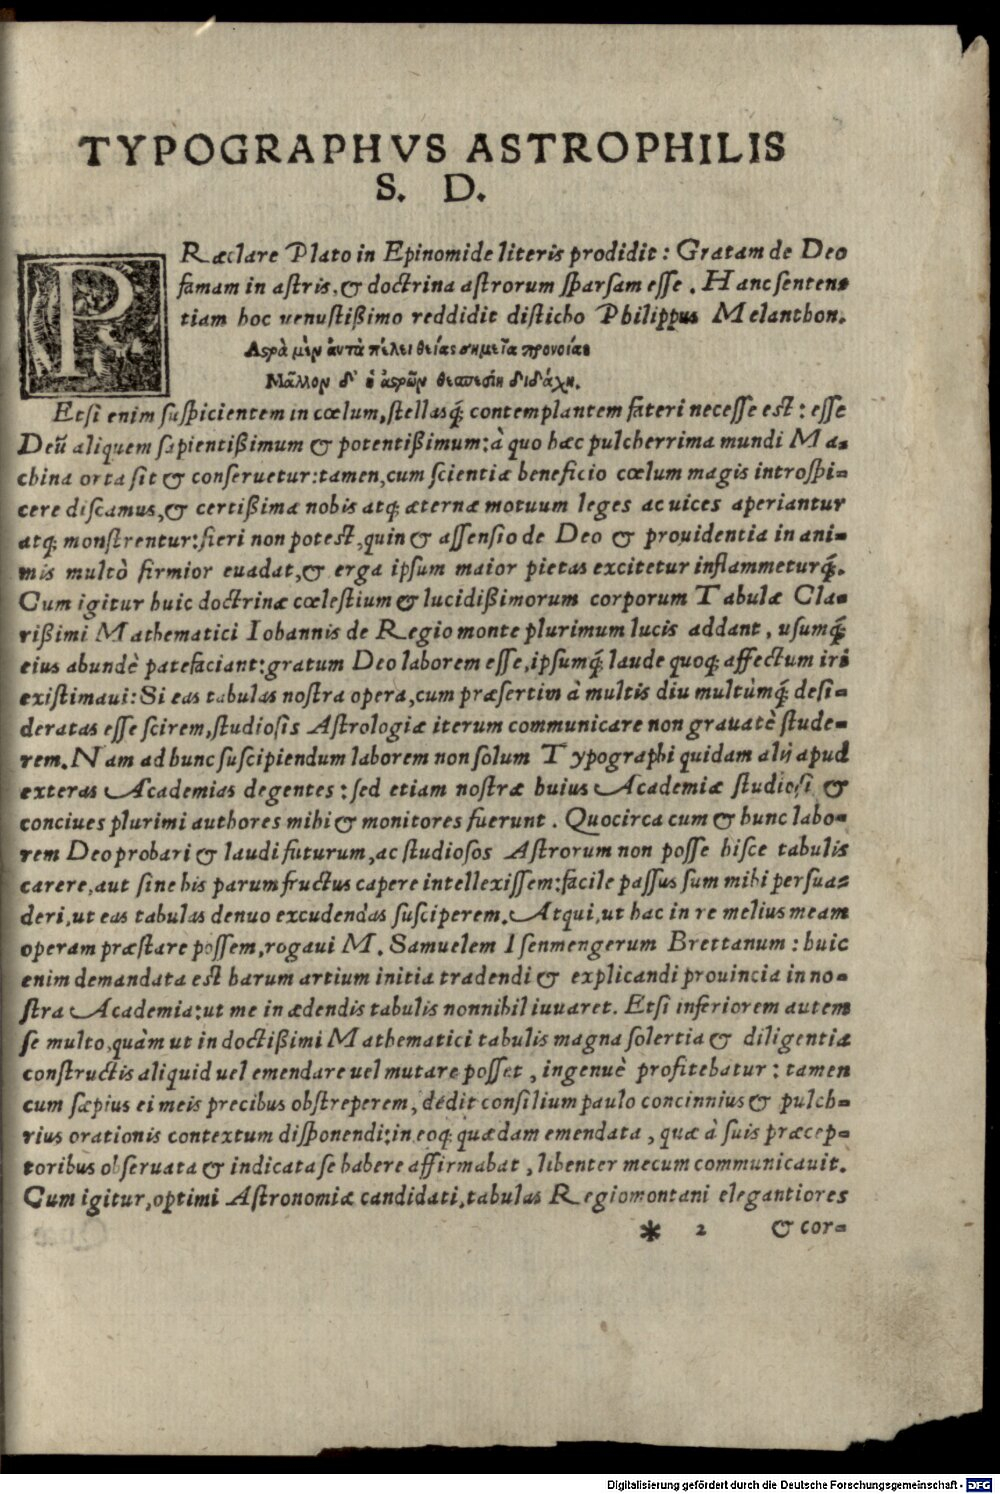 TYPOGRAPHVS ASTROPHILIS
S. D.
PRæclare Plato in Epinomide literis prodidit: Gratam de Deo
famam in astris, & doctrina astrorum sparsam esse. Hanc senten-
tiam hoc uenustißimo reddidit disticho Philippus Melanthon.
Ἀϛρὰ μὲν ἀυτὰ πέλει θείας σημεῖα προνοίας
Μᾶλλον δ' ἡ ἀϛρῶν θεσπεσίη διδάχη.
Etsi enim suspicientem in cœlum, stellasq́; contemplantem fateri necesse est: esse
Deũ aliquem sapientißimum & potentißimum: à quo hæc pulcherrima mundi Ma-
china orta sit & conseruetur: tamen, cum scientiæ beneficio cœlum magis introspi-
cere discamus, & certißimæ nobis atq; æternæ motuum leges ac uices aperiantur
atq; monstrentur: fieri non potest, quin & assensio de Deo & prouidentia in ani-
mis multò firmior euadat, & erga ipsum maior pietas excitetur inflammeturq́;.
Cum igitur huic doctrinæ cœlestium & lucidißimorum corporum Tabulæ Cla-
rißimi Mathematici Iohannis de Regio monte plurimum lucis addant, usumq́;
eius abundè patefaciant: gratum Deo laborem esse, ipsumq́; laude quoq; affectum iri
existimaui: Si eas tabulas nostra opera, cum præsertim à multis diu multùmq́; desi-
deratas esse scirem, studiosis Astrologiæ iterum communicare non grauatè stude-
rem. Nam ad hunc suscipiendum laborem non solum Typographi quidam alij apud
exteras Academias degentes: sed etiam nostræ huius Academiæ studiosi &
conciues plurimi authores mihi & monitores fuerunt. Quocirca cum & hunc labo-
rem Deo probari & laudi futurum, ac studiosos Astrorum non posse hisce tabulis
carere, aut sine his parum fructus capere intellexissem: facile passus sum mihi persua-
deri, ut eas tabulas denuo excudendas susciperem. Atqui, ut hac in re melius meam
operam præstare possem, rogaui M. Samuelem Isenmengerum Brettanum: huic
enim demandata est harum artium initia tradendi & explicandi prouincia in no-
stra Academia: ut me in ædendis tabulis nonnihil iuuaret. Etsi inferiorem autem
se multo, quàm ut in doctißimi Mathematici tabulis magna solertia & diligentia
constructis aliquid uel emendare uel mutare posset, ingenuè profitebatur: tamen
cum sæpius ei meis precibus obstreperem, dedit consilium paulo concinnius & pulch-
rius orationis contextum disponendi: in eoq; quædam emendata, quæ à suis præcep-
toribus obseruata & indicata se habere affirmabat, libenter mecum communicauit.
Cum igitur, optimi Astronomiæ candidati, tabulas Regiomontani elegantiores
* 2 & cor-
Digitalisierung gefördert durch die Deutsche Forschungsgemeinschaft - DFG